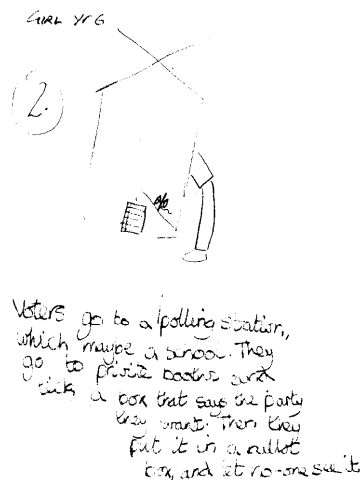 GIRL YR 6
2.
Voters go to a polling station,
which maybe a school. They
go to private booths and
tick a box that says the party
they want. Then they
put it in a ballot
box, and let no-one see it